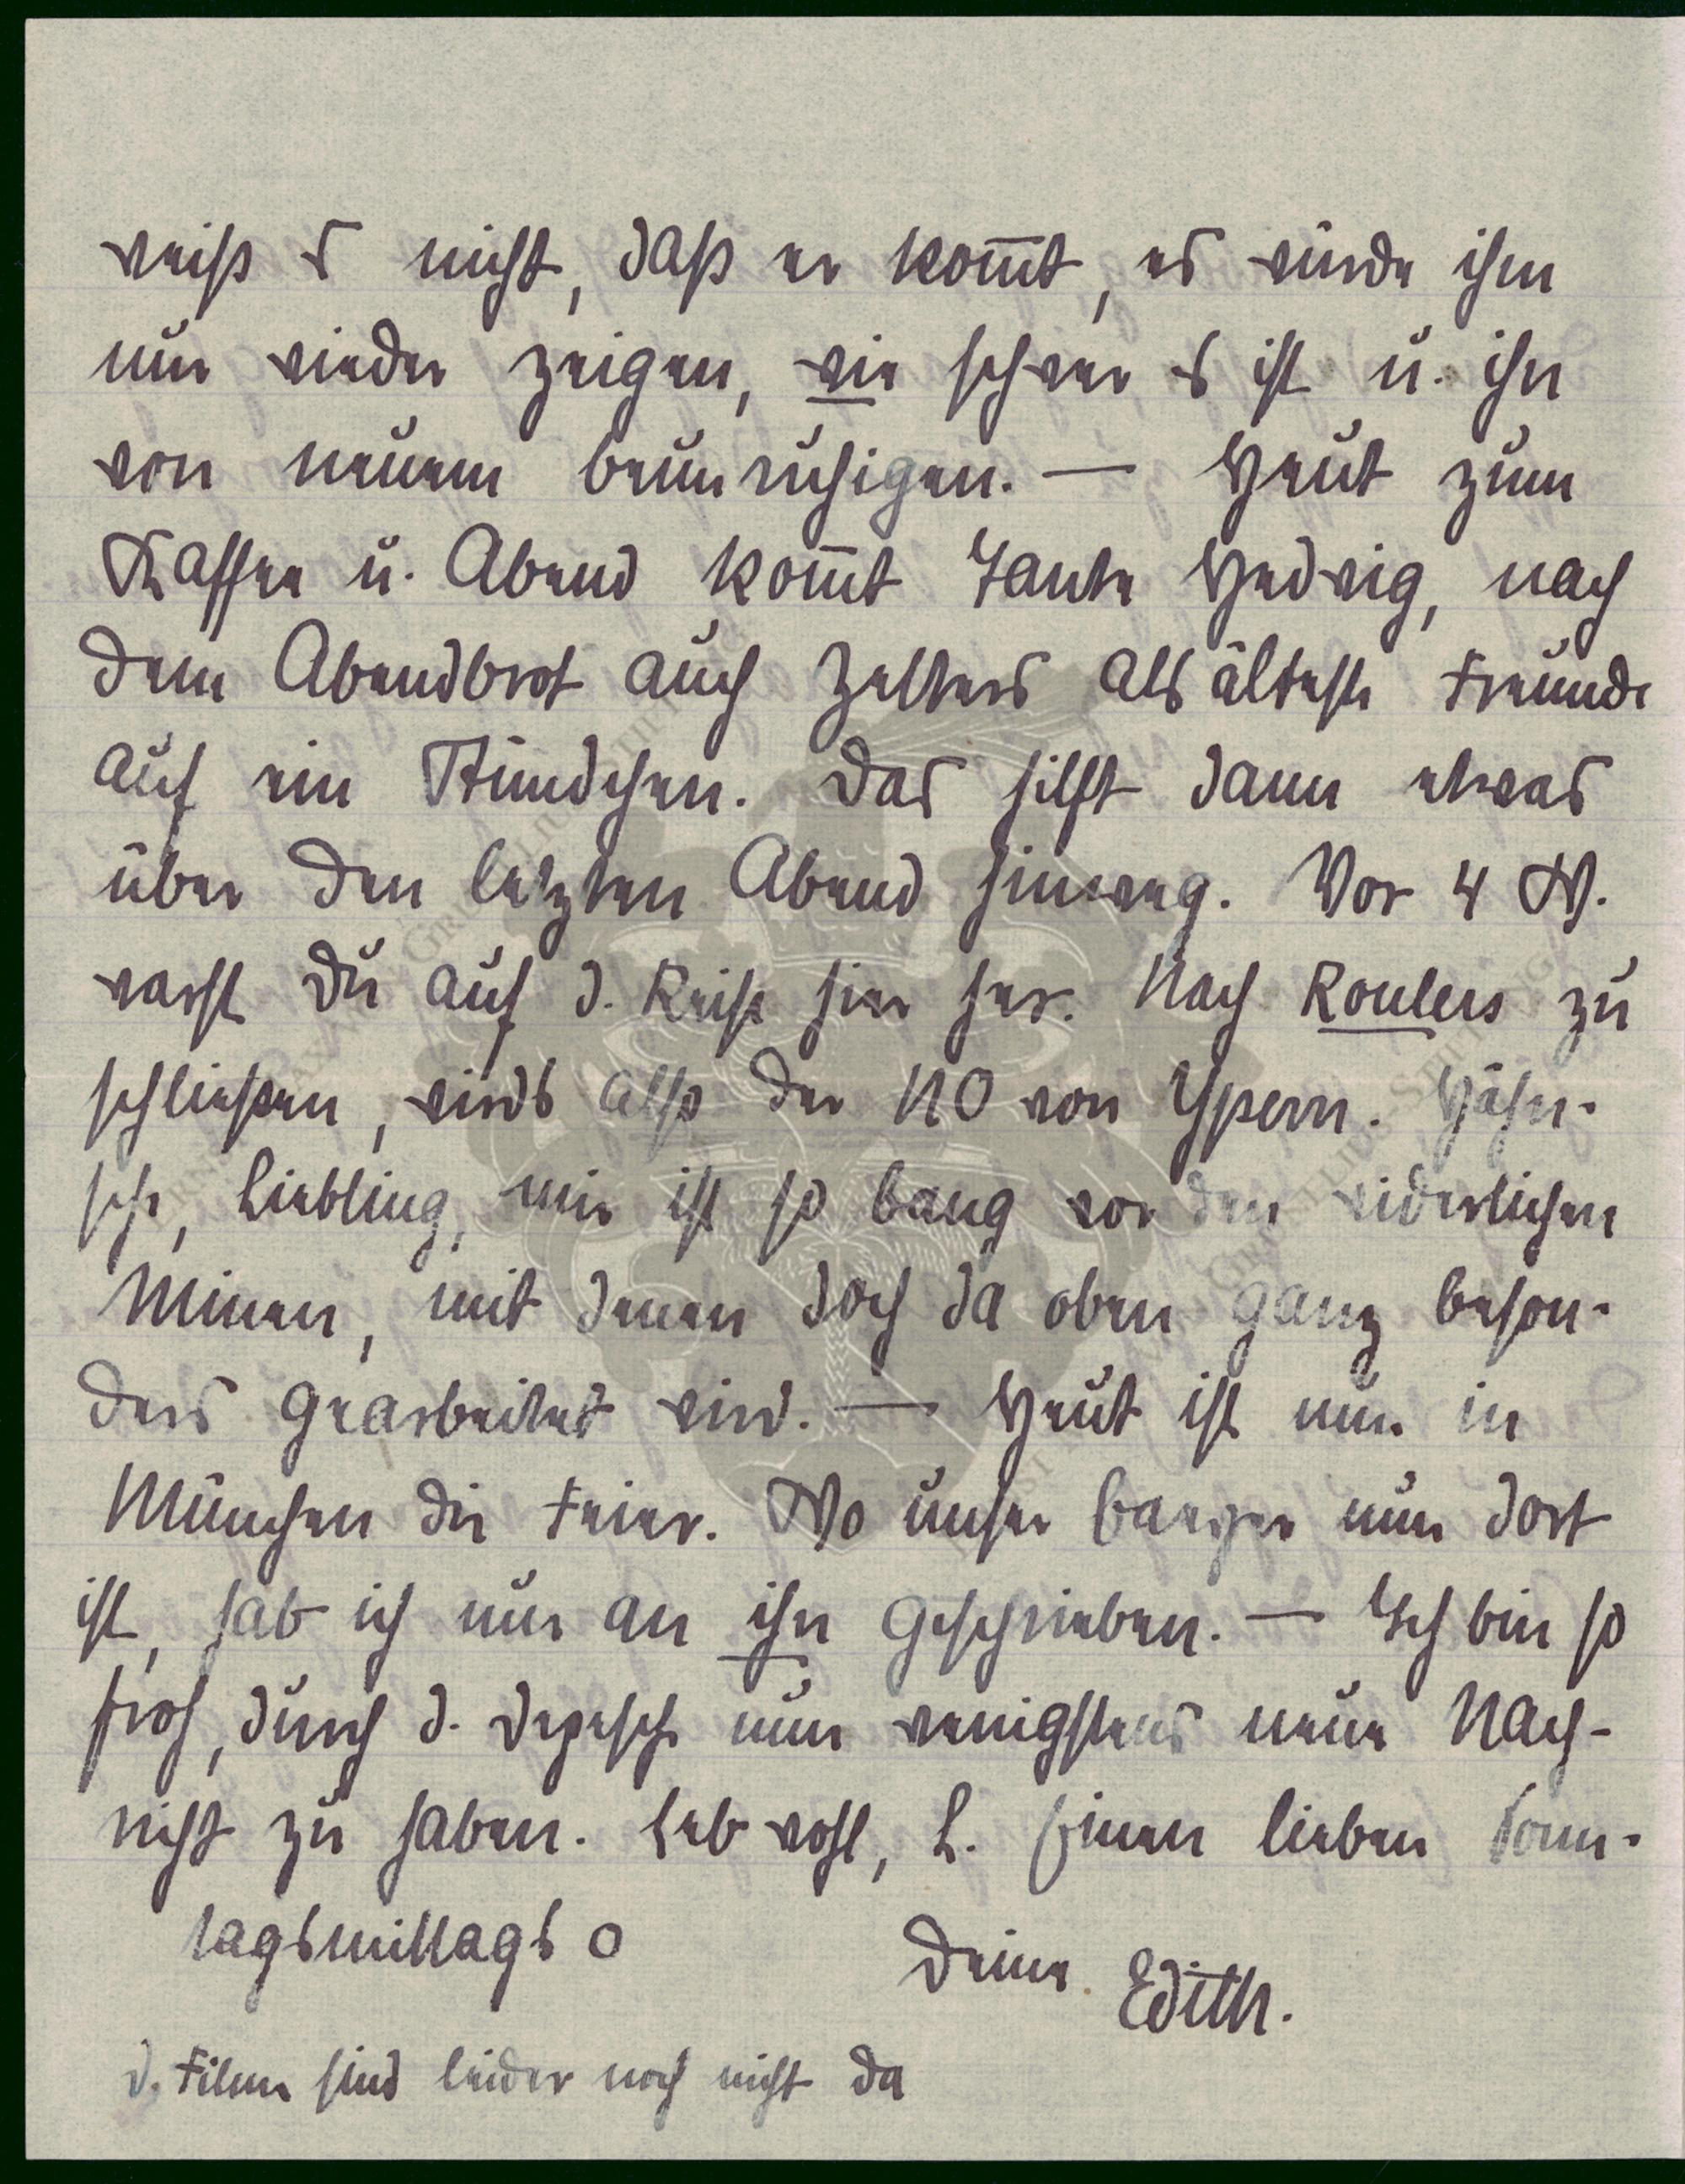 weiß es nicht, daß er kom̅t, es würde ihm
nur wieder zeigen, wie schwer es ist u. ihn
von neuem beunruhigen. — Heut zum
Kaffee u. Abend kom̅t Tante Hedwig, nach
dem Abendbrot auch Zelters als älteste Freunde
auf ein Stündchen. Das hilft dann etwas
über den letzten Abend hinweg. Vor 4 W.
warst Du auf d. Reise hier her. Nach Roulers zu
schließen, wirds also der NO von Ypern. Häns-
che, Liebling, mir ist so bang vor den widerlichen
Minen, mit denen doch da oben ganz beson-
ders gearbeitet wird. — Heut ist nun in
München die Feier. Wo unser nun dort
ist, hab ich nur an ihn geschrieben. — Ich bin so
froh, durch d. Depesche nun wenigstens neue Nach-
richt zu haben. Leb wohl, L. Einen lieben Sonn-
tagsmittags o
Deine Edith.
d. Filme sind leider noch nicht da